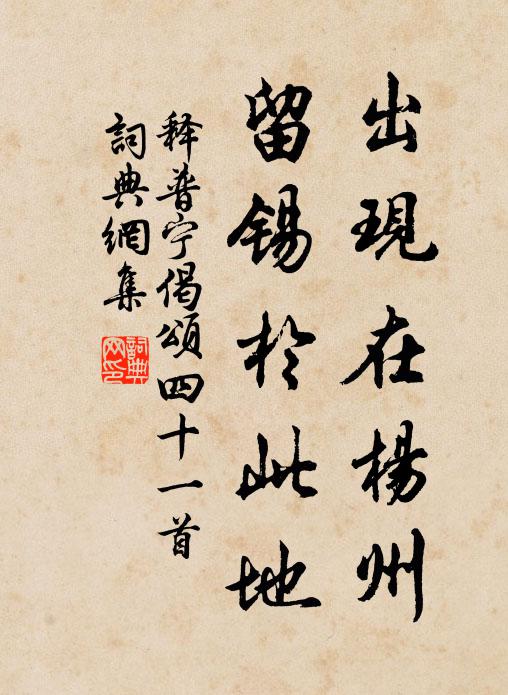 出現在楊州
留錫於此地
释普宁偈頌四十一首
詞典網集
詞典網印